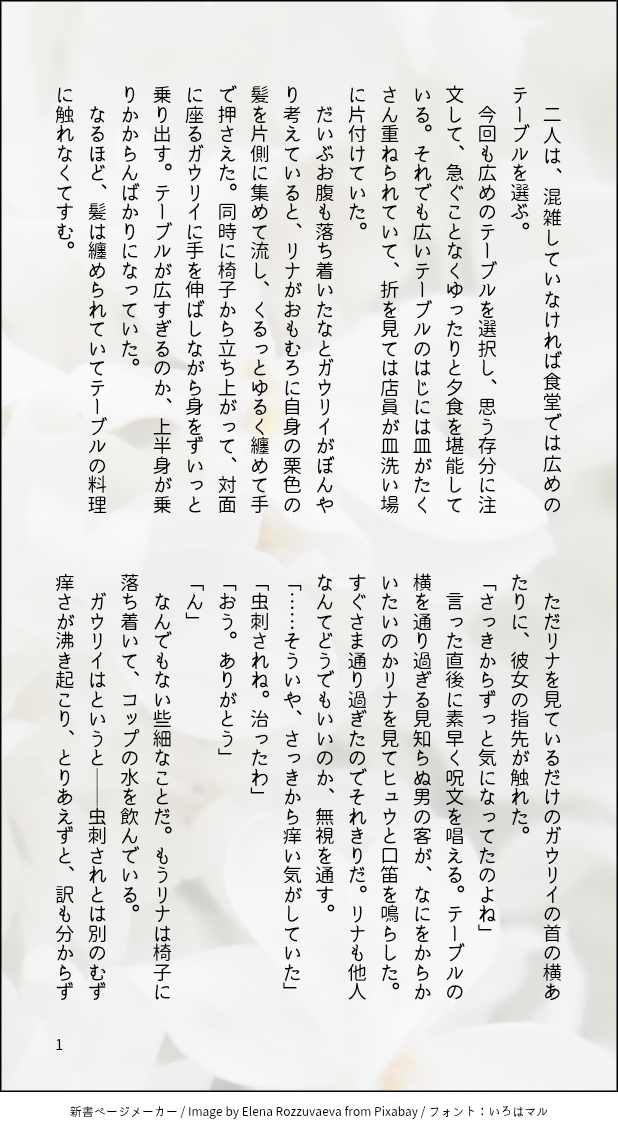 二人は、混雑していなければ食堂では広めの
テーブルを選ぶ。
　今回も広めのテーブルを選択し、思う存分に注
文して、急ぐことなくゆったりと夕食を堪能して
いる。それでも広いテーブルのはじには皿がたく
さん重ねられていて、折を見ては店員が皿洗い場
に片付けていた。
　だいぶお腹も落ち着いたなとガウリイがぼんや
り考えていると、リナがおもむろに自身の栗色の
髪を片側に集めて流し、くるっとゆるく纏めて手
で押さえた。同時に椅子から立ち上がって、対面
に座るガウリイに手を伸ばしながら身をずいっと
乗り出す。テーブルが広すぎるのか、上半身が乗
りかからんばかりになっていた。
　なるほど、髪は纏められていてテーブルの料理
に触れなくてすむ。
　ただリナを見ているだけのガウリイの首の横あ
たりに、彼女の指先が触れた。
「さっきからずっと気になってたのよね」
　言った直後に素早く呪文を唱える。テーブルの
横を通り過ぎる見知らぬ男の客が、なにをからか
いたいのかリナを見てヒュウと口笛を鳴らした。
すぐさま通り過ぎたのでそれきりだ。リナも他人
なんてどうでもいいのか、無視を通す。
「……そういや、さっきから痒い気がしていた」
「虫刺されね。治ったわ」
「おう。ありがとう」
「ん」
　なんでもない些細なことだ。もうリナは椅子に
落ち着いて、コップの水を飲んでいる。
　ガウリイはというと――虫刺されとは別のむず
痒さが沸き起こり、とりあえずと、訳も分からず
1
新書ページメーカー / Image by Elena Rozzuvaeva from Pixabay / フォント：いろはマル